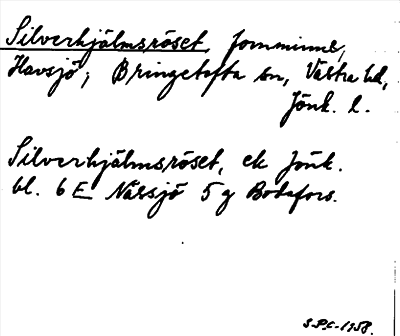 Silverhjälmsröset, fornminne,
Havsjö, Bringetofta sn, Västra hd,
Jönk. l.
Silverhjälmsröset, ek Jönk.
bl. 6 E Nässjö 5 g Bodafors.
S.P.C-1958.